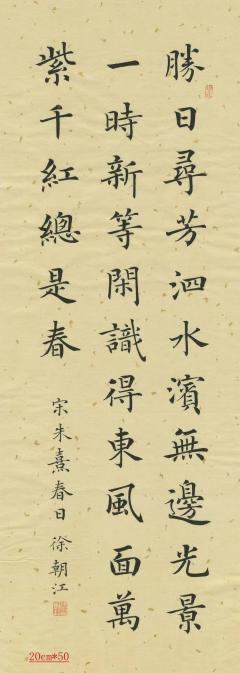 勝日尋芳泗水濱無邊光景
一時新等閑識得東風面萬
紫千紅總是春
宋朱熹春日 徐朝江
20cm*50